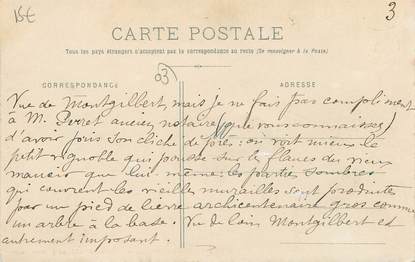 15€
3
CARTE POSTALE
Tous les pays étrangers n'acceptent pas la correspondance au recto (Se renseigner à la Poste)
03
CORRESPONDANCE
ADRESSE
Vue de Montgilbert, mais je ne fais pas compliment
à M. Perret ancien notaire (que vous connaissez)
d'avoir pris son cliché de près: on voit mieux le
petit vignoble qui pousse sur les flancs du vieux
manoir que lui-même: les parties sombres
qui couvrent les vieille murailles sont produites
par un pied de lierre archicentenaire gros comme
un arbre à la base. Vu de loin Montgilbert est
autrement imposant.